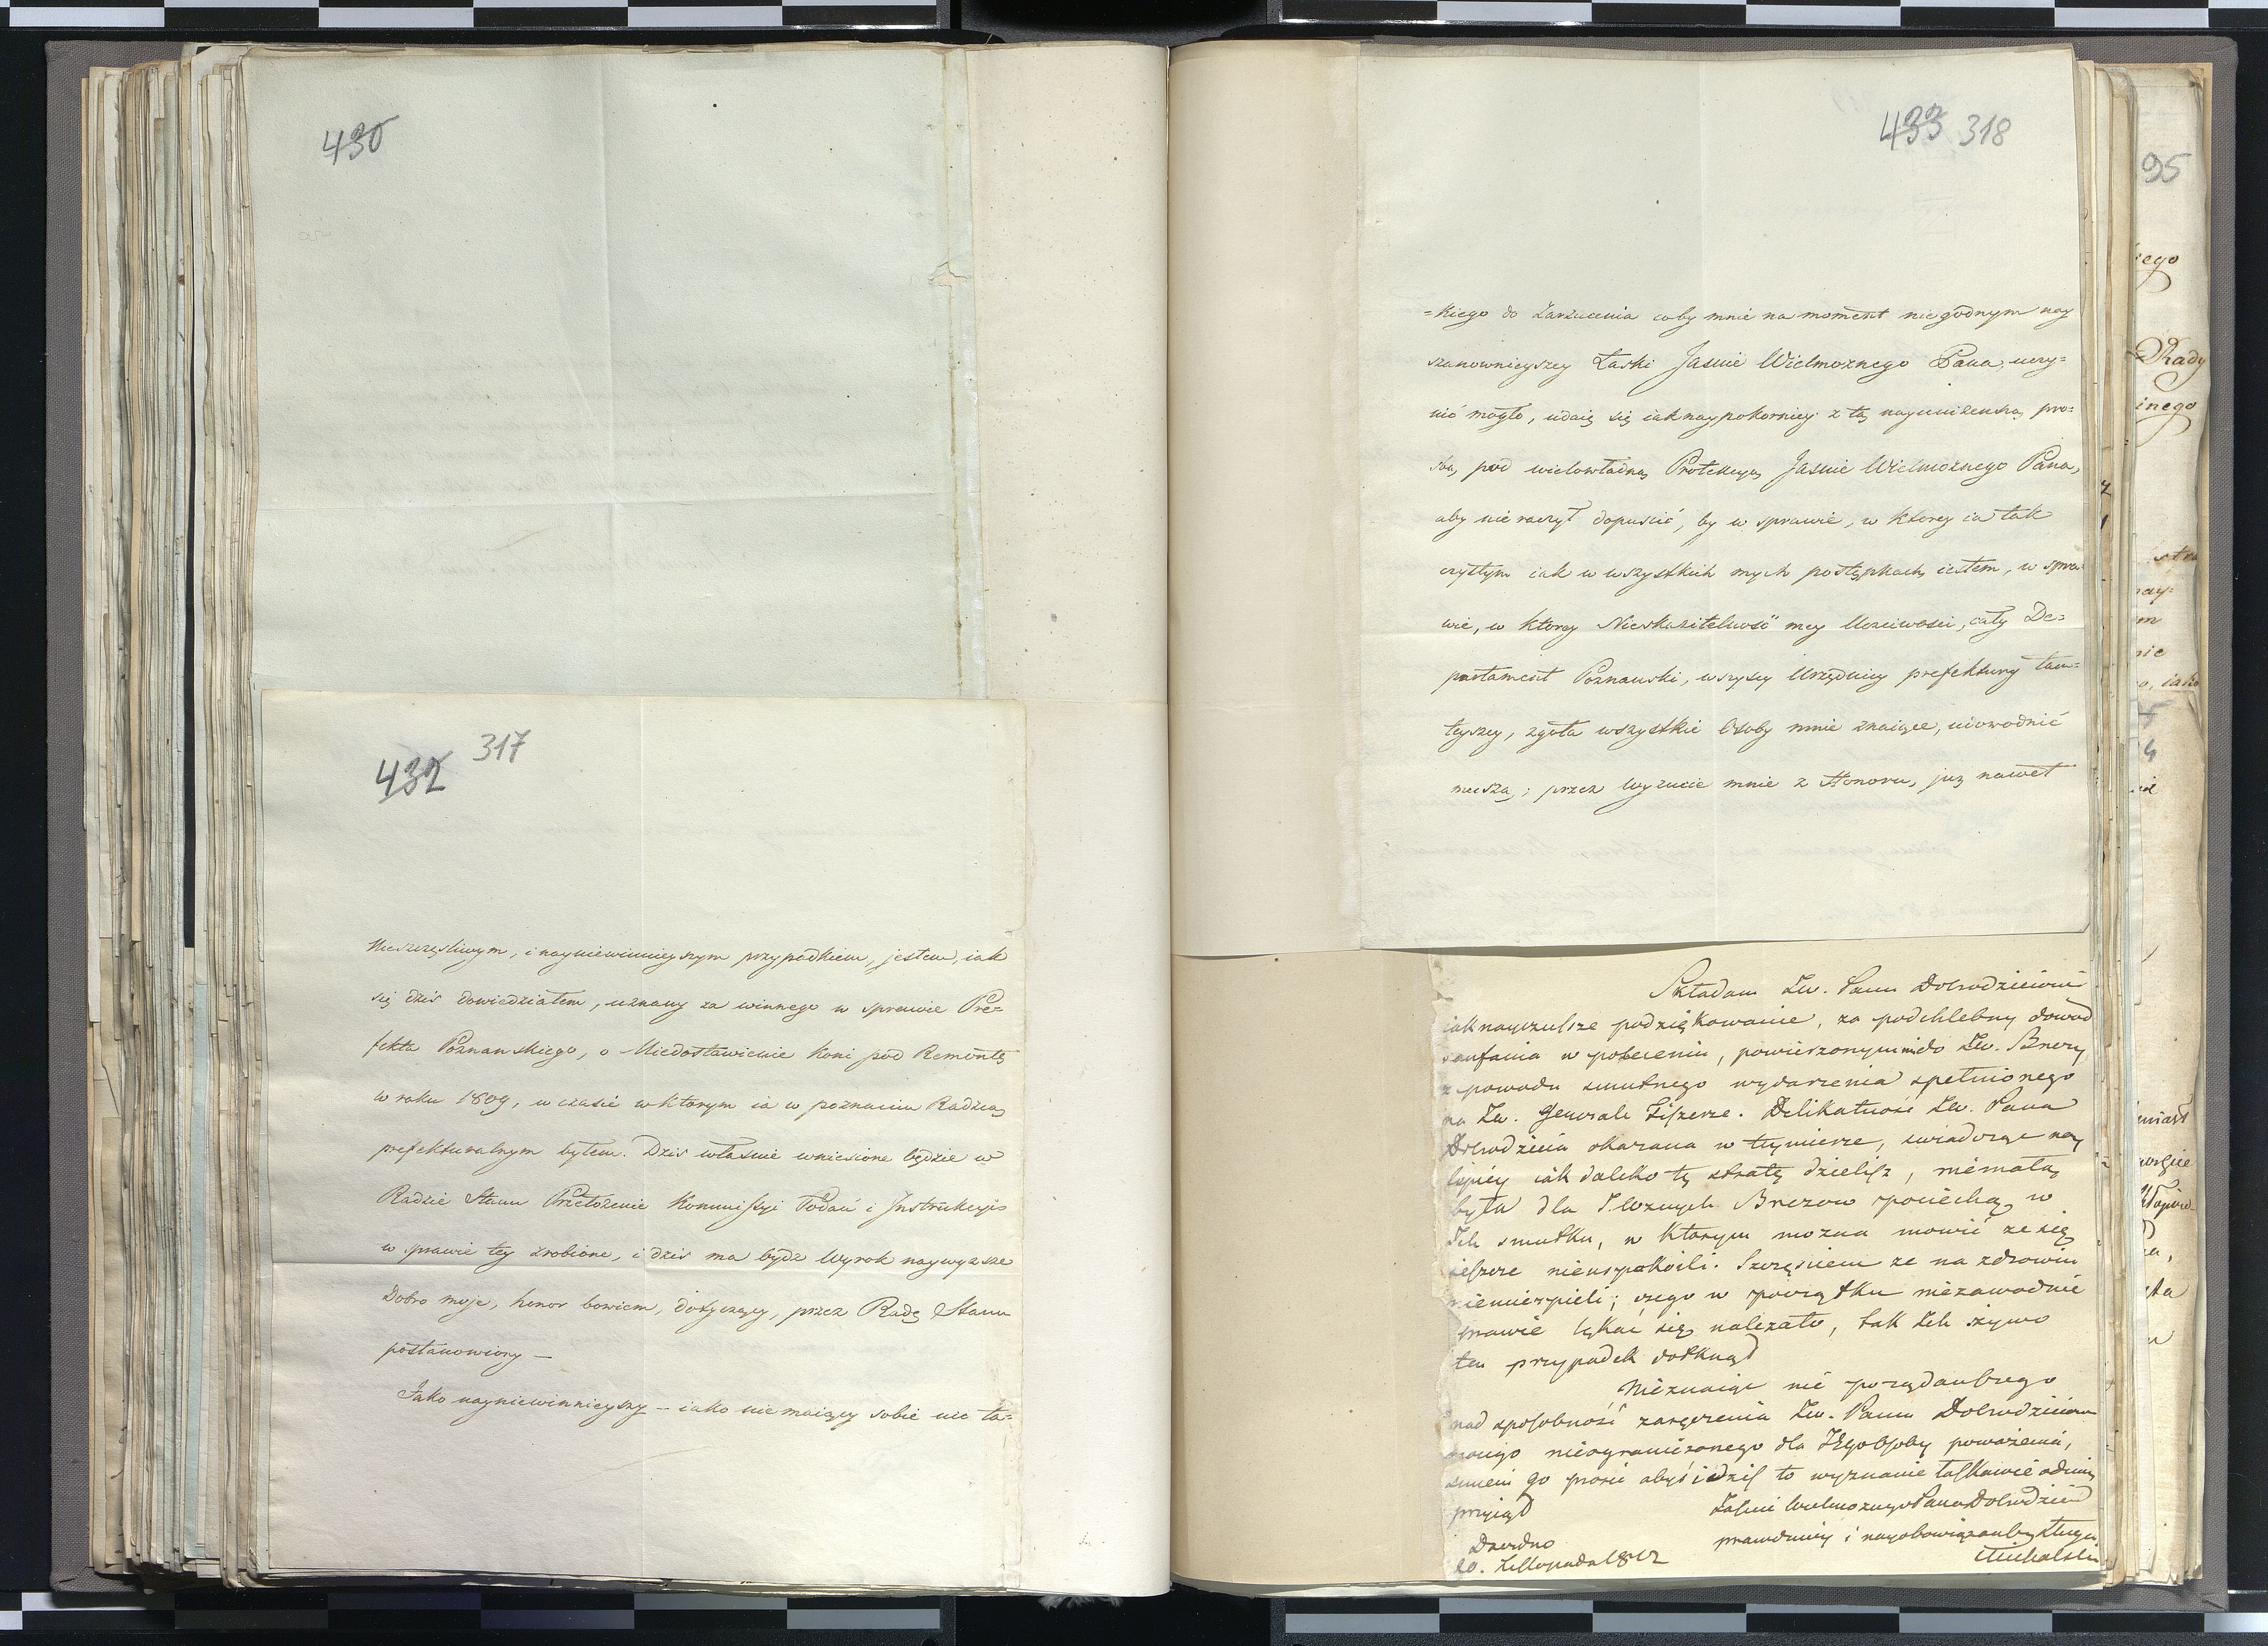 430
432 317
Nieszczęsliwym, i nayniewinnieyszym przypadkiem, jestem, iak
się dzis dowiedziałem, uznany za winnego w sprawie Pre=
fekta Poznanskiego, o Niedostawienie koni pod Remontę
w roku 1809, w czasie w ktorym ia w poznaniu Radzcą
prefekturalnym byłem. Dzis własnie wniesione będzie w
Radzie Stanu Przełożenie Kommissyi Podań i Instrukcyi
w sprawie tey zrobione, i dzis ma bydz Wyrok naywyzsze
Dobro moje, honor bowiem, dotyczący, przez Radę Stanu
postanowiony —
Jako nayniewinnieyszy — iako nie maiący sobie nic ta=
433 318
=kiego do Zarzucenia coby mnie na moment niegodnym nay
szanownieyszey Łaski Jasnie Wielmoznego Pana, uczy=
nić mogło, udaię się iak naypokorniey z tą nayunizenszą pro=
sbą, pod wielowładną Protekcyą Jasnie Wielmoznego Pana,
aby nie raczył dopuscić, by w sprawie, w ktorey ia tak
czystym iak w wszystkich mych postępkach iestem, w spra=
wie, w ktorey Nieskazitelność mey Uczciwosci, cały De=
partament Poznanski, wszyscy Urzędnicy prefektury tam=
teyszey, zgoła wszystkie Osoby mnie znaiące, udowodnić
muszą; przez wyzucie mnie z Honoru, juz nawet
Składam Jw. Panu Dobrodzieiowi
iaknayczulsze podziękowanie, za podchlebny dowod
zaufania w poleceniu, powierzonym mi do Jw.
z powodu smutnego wydarzenia spełnionego
na Jw. Generale Fiszerze. Delikatność Jw. Pana
Dobrodzieia okazana w tey mierze, swiadcząc nay
lepiey iak daleko tę stratę dzielisz, niemałą
była dla pociechą w
Ich smutku, w ktorym mozna mowić ze się
ieszcze nieuspokoili. Szczęsciem ze na zdrowiu
niecierpieli; czego w początku niezawodnie
prawie lękać się nalezało, tak Ich zywo
ten przypadek dotknął
Nieznaiąc nic pozdądanszego
nad sposobność zaręczenia Jw. Panu Dobrodzieiowi
moiego nieograniczonego dla Jego Osoby powazenia,
smiem go prosić abyś i dziś to wyznanie łaskawie odemnie
przyiął
Jasnie Wielmoznego Pana Dobrodzieia
prawdziwy i nayobowiązanszy Sługa
20. Listopada 1812
95
iego
Rady
inego